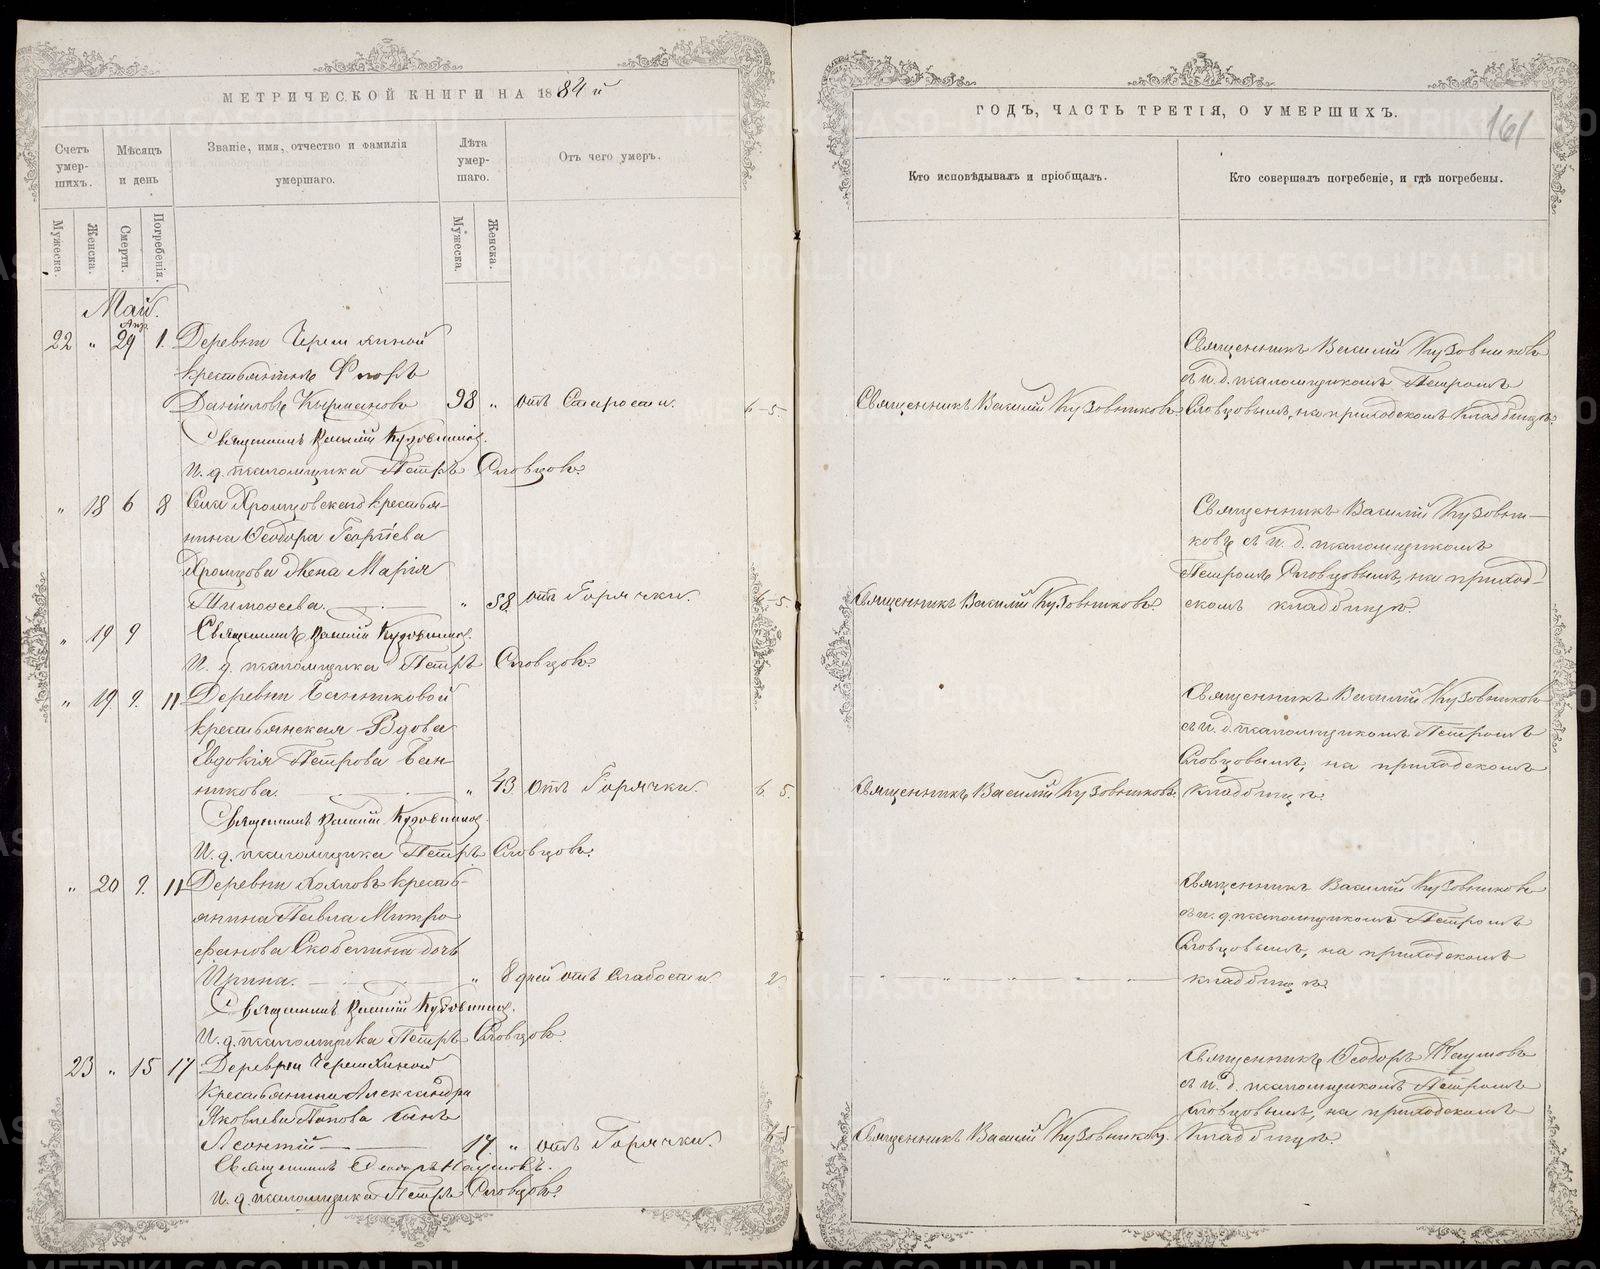 МЕТРИЧЕСКОЙ КНИГИ НА 1884 й
Счетъ умер-шихъ.
Мѣсяцъ и день
Званіе, имя, отчество и фамилія умершаго.
Лѣта умер-шаго.
Отъ чего умеръ.
Мужеска.
Женска.
Смерти.
Погребенія.
Мужеска.
Женска.
Май.
Апр.
22 " 29 1. Деревни
крестьянинъ Флоръ
Даніиловъ 98 " отъ Старости. 6-5.
Священникъ Василій Кузовниковъ.
И. д. псаломщика Петръ Словцовъ.
" 18 6 8 Села Хромцовскаго крестья-
нина Ѳеодора Георгіева
Хромцова жена Марія
Тимоѳеева. " 58. отъ Горячки. 6-5.
" 19 9 Священникъ Василій Кузовниковъ.
И. д. псаломщика Петръ Словцовъ.
" 19. 9. 11 Деревни Банниковой
крестьянская Вдова
Евдокія Петрова Бан-
никова. " 43 отъ Горячки. 6. 5.
Священникъ Василій Кузовниковъ.
И. д. псаломщика Петръ Словцовъ.
" 20 9. 11 Деревни крестьянина Павла Митро
фанова Скобелина дочь
Ирина. " 8 дней отъ Слабости 2.
Священникъ Василій Кузовниковъ.
И. д. псаломщика Петръ Словцовъ.
23 " 15 17 Деревни
крестьянина Александра
Яковлева Попова сынъ
Леонтій 17. " отъ Горячки. 6-5
Священникъ Ѳеодоръ Наумовъ.
И. д. псаломщика Петръ Словцовъ.
ГОДЪ, ЧАСТЬ ТРЕТІЯ, О УМЕРШИХЪ.
161
Кто исповѣдывалъ и пріобщалъ.
Кто совершалъ погребеніе, и гдѣ погребены.
Священникъ Василій Кузовниковъ
съ и. д. псаломщикомъ Петромъ
Священникъ Василій Кузовниковъ Словцовымъ, на приходскомъ кладбищѣ.
Священникъ Василій Кузовни-
ковъ съ и. д. псаломщикомъ
Петромъ Словцовымъ, на приход-
Священникъ Василій Кузовниковъ. скомъ кладбищѣ.
Священникъ Василій Кузовниковъ
съ и. д. псаломщикомъ Петромъ
Словцовымъ, на приходскомъ
Священникъ Василій Кузовниковъ. кладбищѣ.
Священникъ Василій Кузовниковъ
съ и. д. псаломщикомъ Петромъ
Словцовымъ, на приходскомъ
кладбищѣ.
Священникъ Ѳеодоръ Наумовъ
съ и. д. псаломщикомъ Петромъ
Словцовымъ, на приходскомъ
Священникъ Василій Кузовниковъ. кладбищѣ.
METRIKI.GASO-URAL.RU